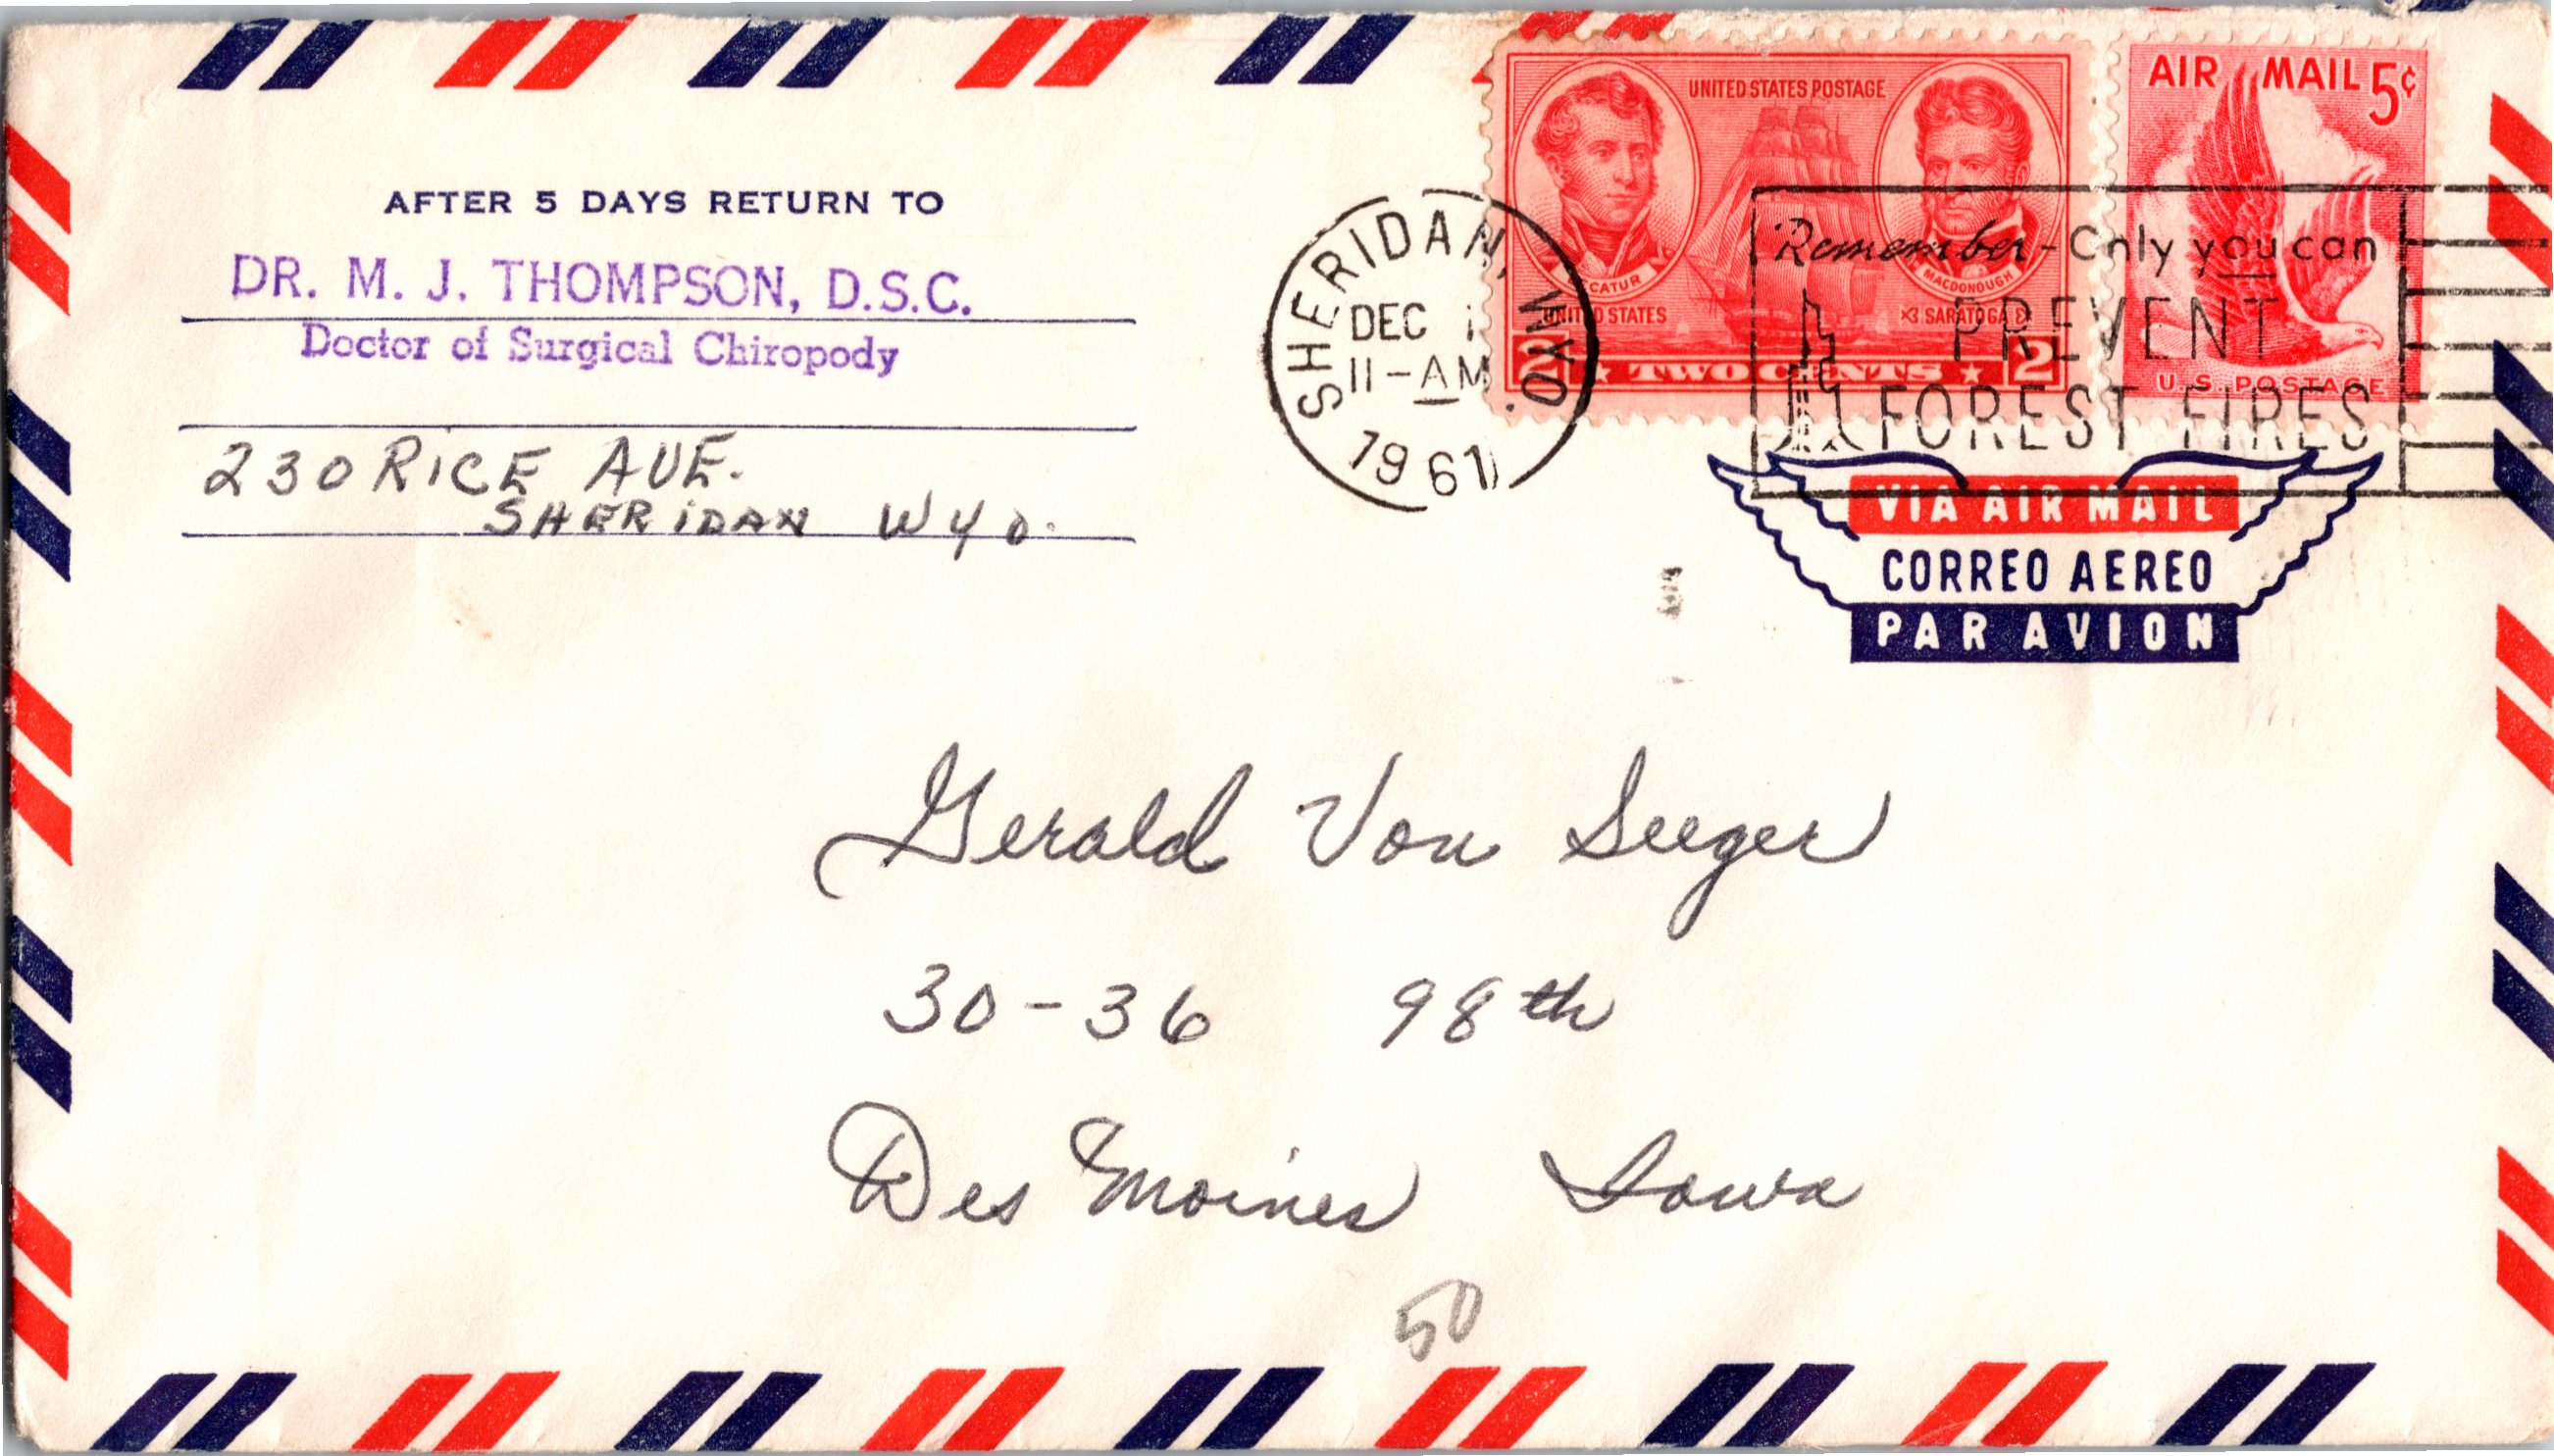 AFTER 5 DAYS RETURN TO
DR. M. J. THOMPSON, D.S.C.
Doctor of Surgical Chiropody
230 RICE AVE.
SHERIDAN WYO.
SHERIDAN, WYO.
DEC 1
11-AM
1961
UNITED STATES POSTAGE
DECATUR
MACDONOUGH
UNITED STATES
SARATOGA
2 TWO CENTS 2
AIR MAIL 5¢
U.S. POSTAGE
Remember-Only you can
PREVENT
FOREST FIRES
VIA AIR MAIL
CORREO AEREO
PAR AVION
Gerald Von Seeger
30-36 98th
Des Moines Iowa
50